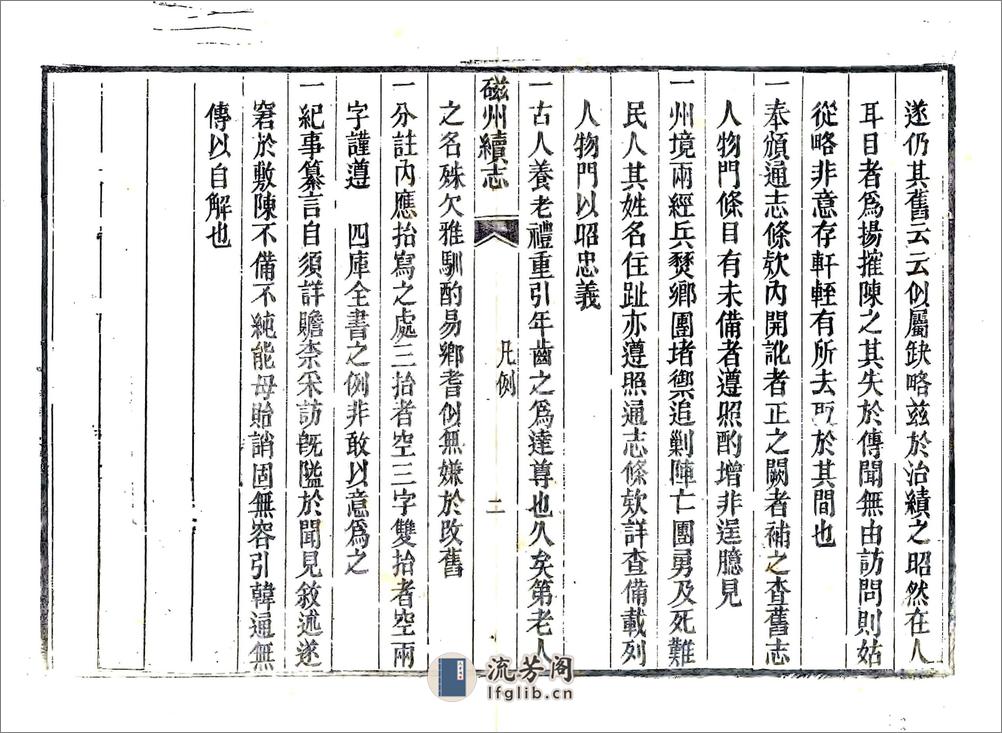 遂仍其舊云云似屬缺略兹於治績之昭然在人
耳目者爲揚搉陳之其失於傳聞無由訪問則姑
從略非意存軒輊有所去取於其間也
一奉頒通志條欵內開訛者正之闕者補之查舊志
人物門條目有未備者遵照酌增非逞臆見
一州境兩經兵燹鄉團堵禦追剿陣亡團勇及死難
民人其姓名住趾亦遵照通志條欵詳查備載列
人物門以昭忠義
一古人養老禮重引年齒之爲達尊也久矣第老人
磁州續志
凡例
二
之名殊欠雅馴酌易鄉耆似無嫌於改舊
一分註內應抬寫之處三抬者空三字雙抬者空兩
字謹遵 四庫全書之例非敢以意爲之
一紀事纂言自須詳贍柰采訪旣隘於聞見敘述遂
窘於敷陳不備不純能毋貽誚固無容引韓通無
傳以自解也
流芳阁
lfglib.cn